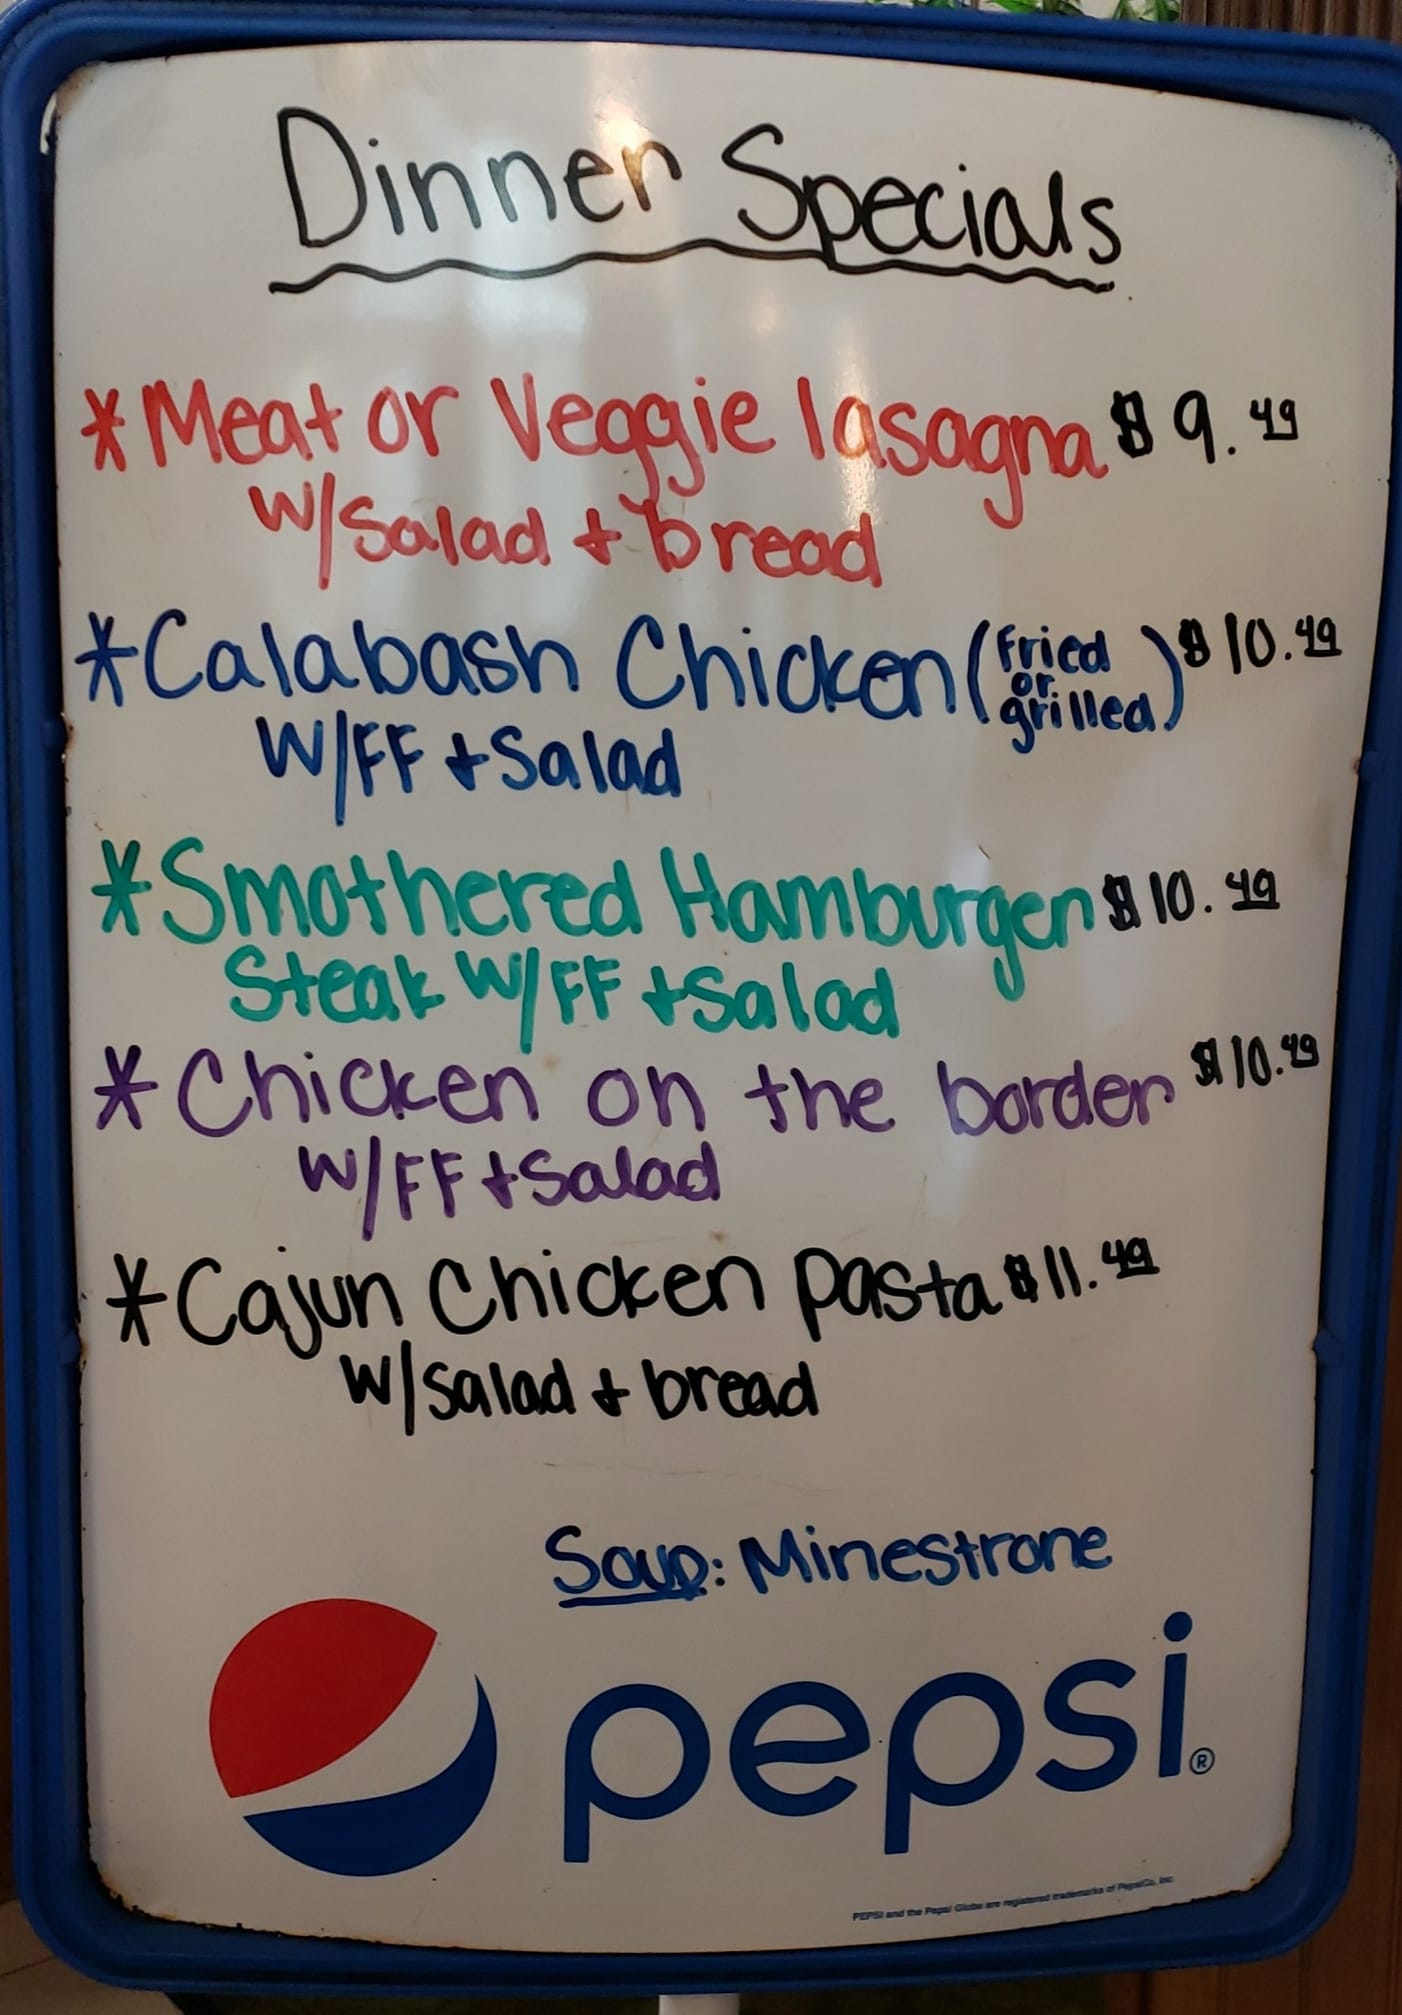 Dinner Specials
*Meat or Veggie lasagna $9.49
W/Salad + bread
*Calabash Chicken (fried or grilled) $10.49
W/FF + Salad
*Smothered Hamburger $10.49
Steak W/FF + Salad
*Chicken on the border $10.49
W/FF + Salad
*Cajun Chicken pasta $11.49
W/Salad + bread
Soup: Minestrone
pepsi®
PEPSI and the Pepsi Globe are registered trademarks of PepsiCo, Inc.